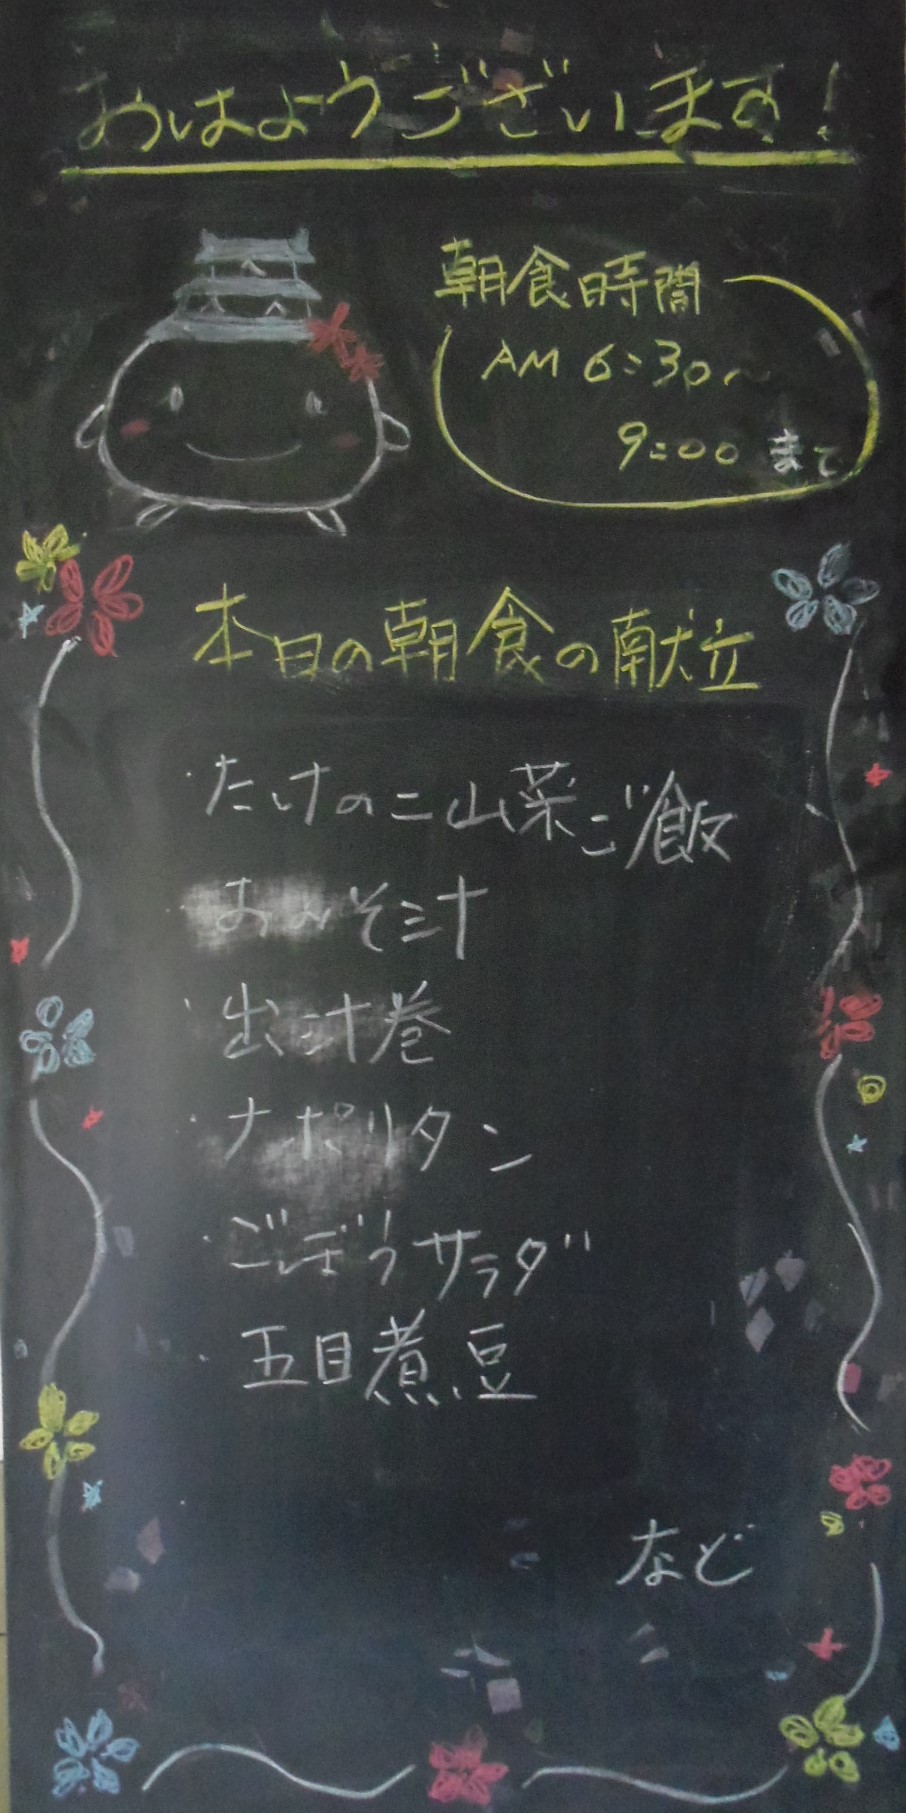 おはようございます!
朝食時間
AM 6:30~
9:00 まで
本日の朝食の献立
・たけのこ山菜ご飯
・おみそ汁
・出汁巻
・ナポリタン
・ごぼうサラダ
・五目煮豆
など